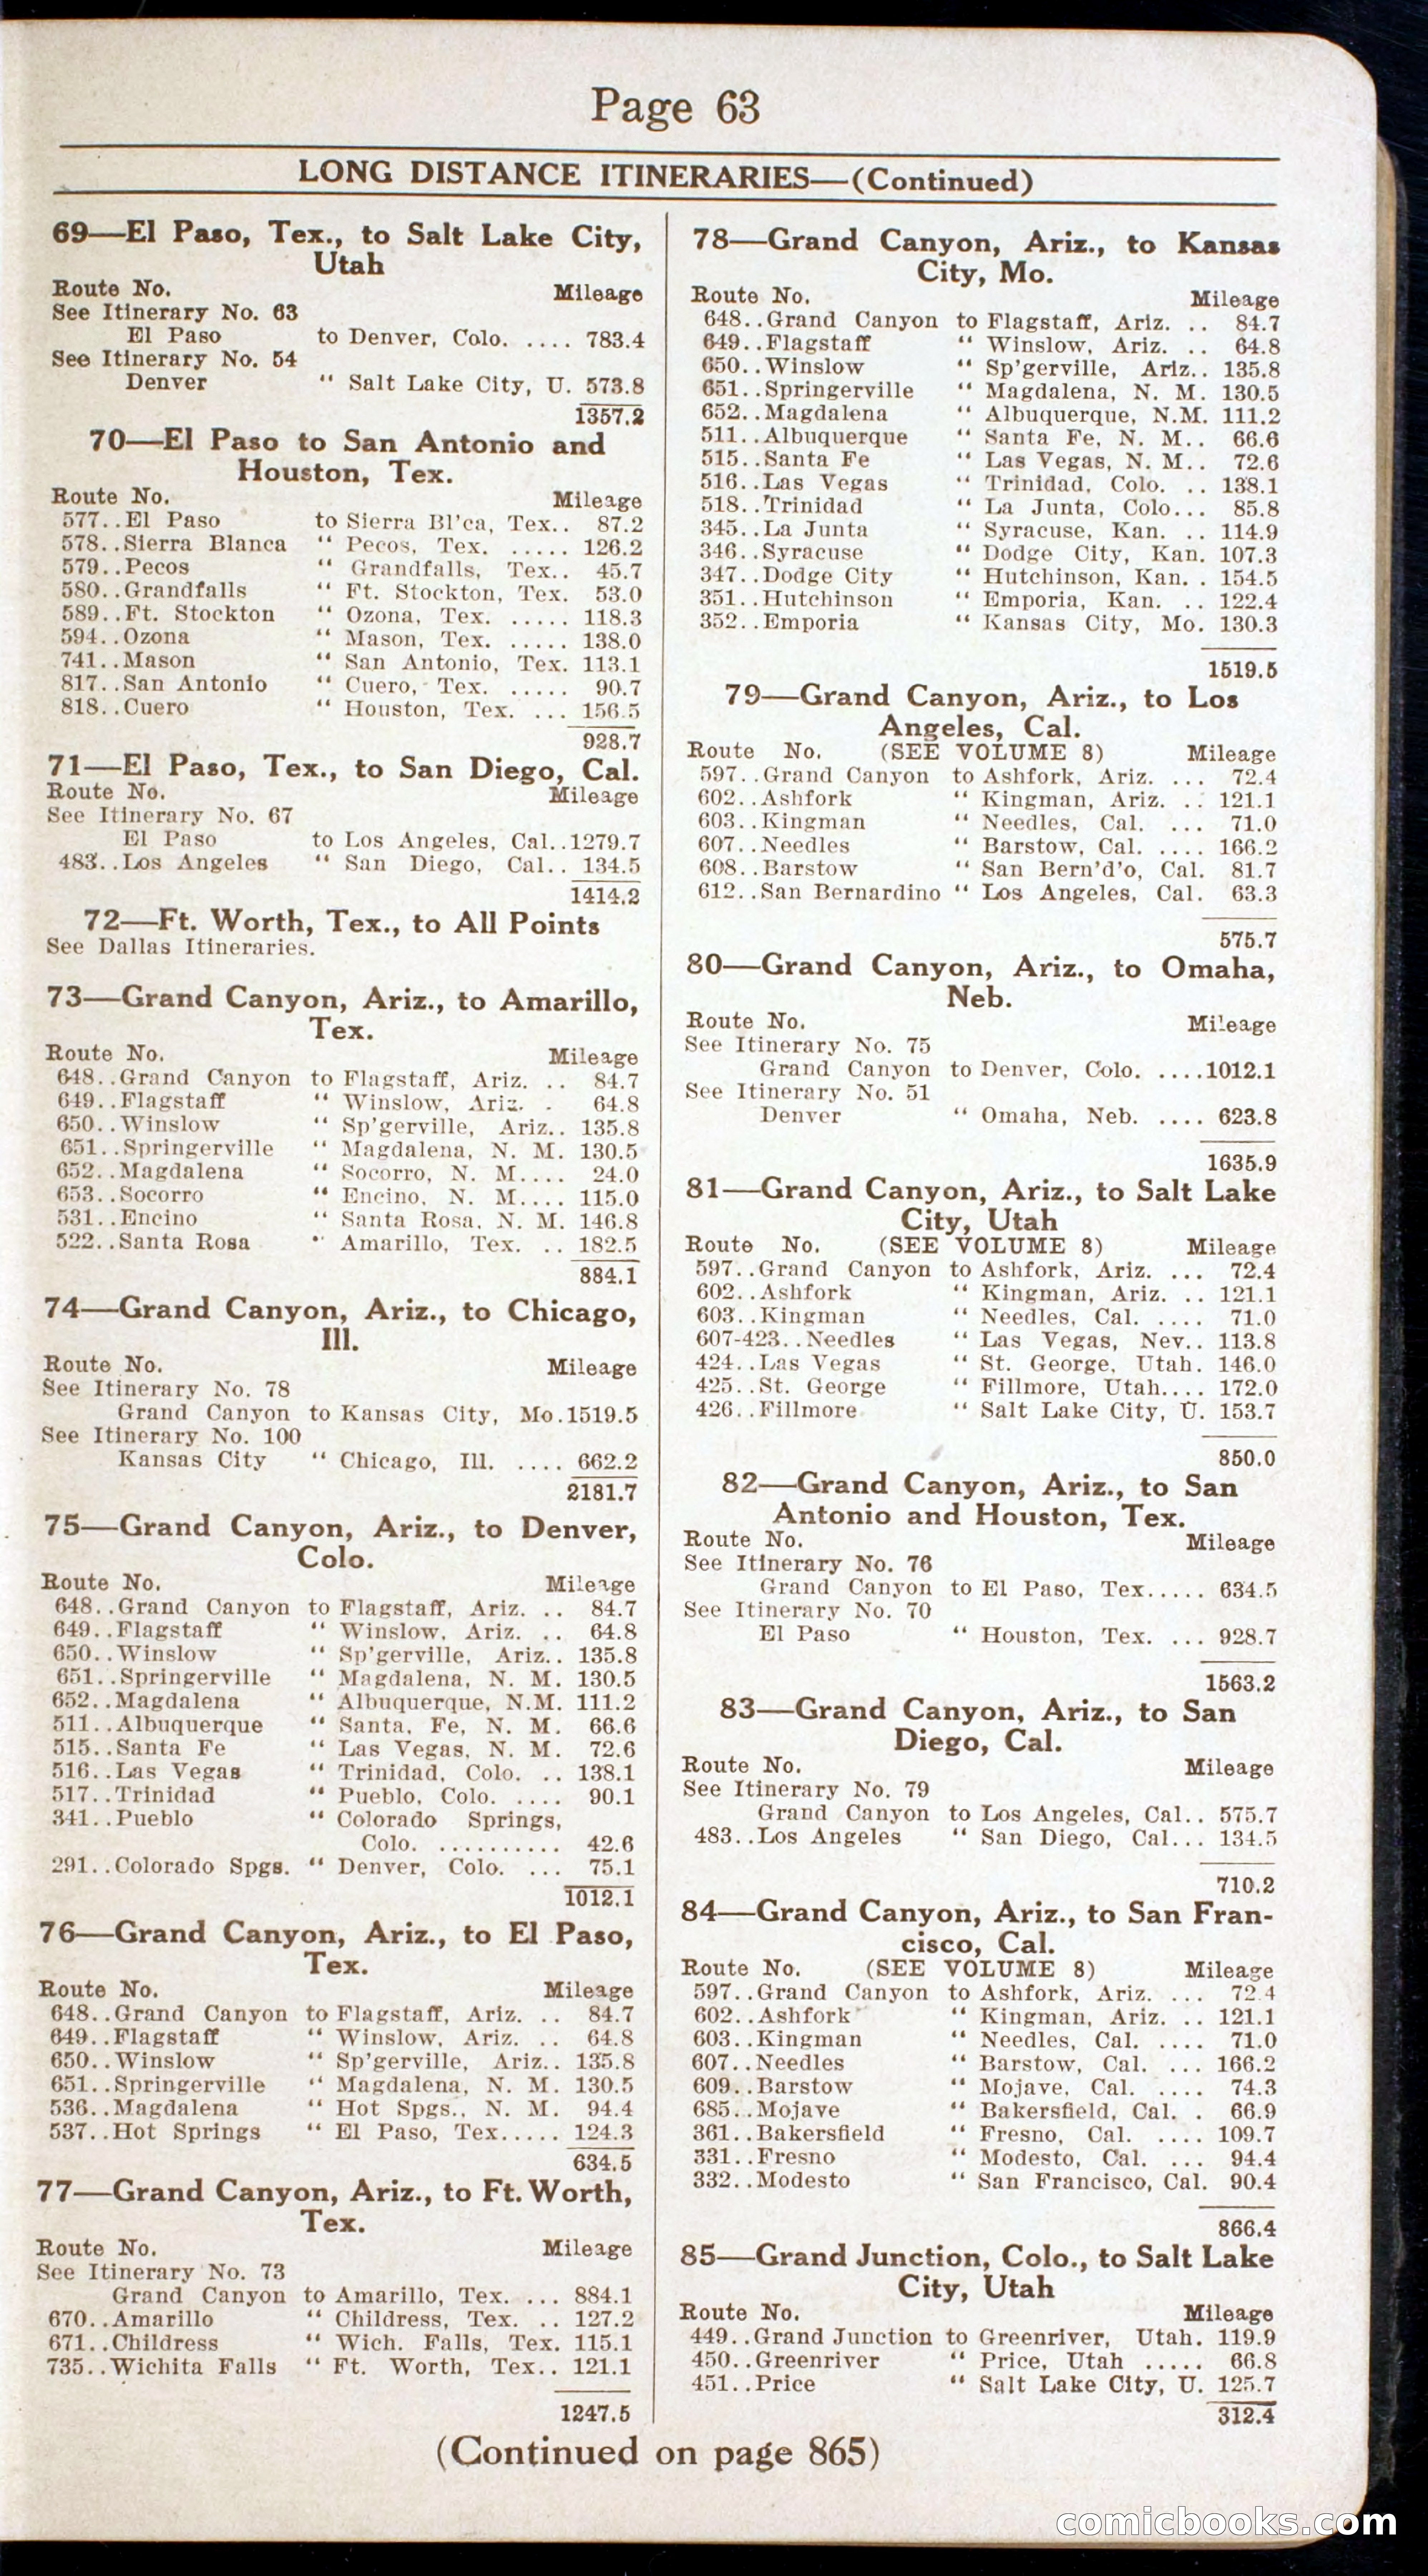 Page 63
LONG DISTANCE ITINERARIES—(Continued)
69—El Paso, Tex., to Salt Lake City,
Utah
Route No. Mileage
See Itinerary No. 63
El Paso to Denver, Colo. .... 783.4
See Itinerary No. 54
Denver " Salt Lake City, U. 573.8
1357.2
70—El Paso to San Antonio and
Houston, Tex.
Route No. Mileage
577..El Paso to Sierra Bl'ca, Tex.. 87.2
578..Sierra Blanca " Pecos, Tex. ..... 126.2
579..Pecos " Grandfalls, Tex.. 45.7
580..Grandfalls " Ft. Stockton, Tex. 53.0
589..Ft. Stockton " Ozona, Tex. ..... 118.3
594..Ozona " Mason, Tex. ..... 138.0
741..Mason " San Antonio, Tex. 113.1
817..San Antonio " Cuero, Tex. ..... 90.7
818..Cuero " Houston, Tex. ... 156.5
928.7
71—El Paso, Tex., to San Diego, Cal.
Route No. Mileage
See Itinerary No. 67
El Paso to Los Angeles, Cal..1279.7
483..Los Angeles " San Diego, Cal.. 134.5
1414.2
72—Ft. Worth, Tex., to All Points
See Dallas Itineraries.
73—Grand Canyon, Ariz., to Amarillo,
Tex.
Route No. Mileage
648..Grand Canyon to Flagstaff, Ariz. .. 84.7
649..Flagstaff " Winslow, Ariz. . 64.8
650..Winslow " Sp'gerville, Ariz.. 135.8
651..Springerville " Magdalena, N. M. 130.5
652..Magdalena " Socorro, N. M.... 24.0
653..Socorro " Encino, N. M.... 115.0
531..Encino " Santa Rosa, N. M. 146.8
522..Santa Rosa " Amarillo, Tex. .. 182.5
884.1
74—Grand Canyon, Ariz., to Chicago,
Ill.
Route No. Mileage
See Itinerary No. 78
Grand Canyon to Kansas City, Mo.1519.5
See Itinerary No. 100
Kansas City " Chicago, Ill. .... 662.2
2181.7
75—Grand Canyon, Ariz., to Denver,
Colo.
Route No. Mileage
648..Grand Canyon to Flagstaff, Ariz. .. 84.7
649..Flagstaff " Winslow, Ariz. .. 64.8
650..Winslow " Sp'gerville, Ariz.. 135.8
651..Springerville " Magdalena, N. M. 130.5
652..Magdalena " Albuquerque, N.M. 111.2
511..Albuquerque " Santa, Fe, N. M. 66.6
515..Santa Fe " Las Vegas, N. M. 72.6
516..Las Vegas " Trinidad, Colo. .. 138.1
517..Trinidad " Pueblo, Colo. .... 90.1
341..Pueblo " Colorado Springs,
Colo. .......... 42.6
291..Colorado Spgs. " Denver, Colo. ... 75.1
1012.1
76—Grand Canyon, Ariz., to El Paso,
Tex.
Route No. Mileage
648..Grand Canyon to Flagstaff, Ariz. .. 84.7
649..Flagstaff " Winslow, Ariz. .. 64.8
650..Winslow " Sp'gerville, Ariz.. 135.8
651..Springerville " Magdalena, N. M. 130.5
536..Magdalena " Hot Spgs., N. M. 94.4
537..Hot Springs " El Paso, Tex..... 124.3
634.5
77—Grand Canyon, Ariz., to Ft. Worth,
Tex.
Route No. Mileage
See Itinerary No. 73
Grand Canyon to Amarillo, Tex. ... 884.1
670..Amarillo " Childress, Tex. .. 127.2
671..Childress " Wich. Falls, Tex. 115.1
735..Wichita Falls " Ft. Worth, Tex.. 121.1
1247.5
78—Grand Canyon, Ariz., to Kansas
City, Mo.
Route No. Mileage
648..Grand Canyon to Flagstaff, Ariz. .. 84.7
649..Flagstaff " Winslow, Ariz. .. 64.8
650..Winslow " Sp'gerville, Ariz.. 135.8
651..Springerville " Magdalena, N. M. 130.5
652..Magdalena " Albuquerque, N.M. 111.2
511..Albuquerque " Santa Fe, N. M.. 66.6
515..Santa Fe " Las Vegas, N. M.. 72.6
516..Las Vegas " Trinidad, Colo. .. 138.1
518..Trinidad " La Junta, Colo... 85.8
345..La Junta " Syracuse, Kan. .. 114.9
346..Syracuse " Dodge City, Kan. 107.3
347..Dodge City " Hutchinson, Kan. . 154.5
351..Hutchinson " Emporia, Kan. .. 122.4
352..Emporia " Kansas City, Mo. 130.3
1519.5
79—Grand Canyon, Ariz., to Los
Angeles, Cal.
Route No. (SEE VOLUME 8) Mileage
597..Grand Canyon to Ashfork, Ariz. ... 72.4
602..Ashfork " Kingman, Ariz. .. 121.1
603..Kingman " Needles, Cal. ... 71.0
607..Needles " Barstow, Cal. .... 166.2
608..Barstow " San Bern'd'o, Cal. 81.7
612..San Bernardino " Los Angeles, Cal. 63.3
575.7
80—Grand Canyon, Ariz., to Omaha,
Neb.
Route No. Mileage
See Itinerary No. 75
Grand Canyon to Denver, Colo. ....1012.1
See Itinerary No. 51
Denver " Omaha, Neb. .... 623.8
1635.9
81—Grand Canyon, Ariz., to Salt Lake
City, Utah
Route No. (SEE VOLUME 8) Mileage
597..Grand Canyon to Ashfork, Ariz. ... 72.4
602..Ashfork " Kingman, Ariz. .. 121.1
603..Kingman " Needles, Cal. .... 71.0
607-423..Needles " Las Vegas, Nev.. 113.8
424..Las Vegas " St. George, Utah. 146.0
425..St. George " Fillmore, Utah.... 172.0
426..Fillmore " Salt Lake City, U. 153.7
850.0
82—Grand Canyon, Ariz., to San
Antonio and Houston, Tex.
Route No. Mileage
See Itinerary No. 76
Grand Canyon to El Paso, Tex..... 634.5
See Itinerary No. 70
El Paso " Houston, Tex. ... 928.7
1563.2
83—Grand Canyon, Ariz., to San
Diego, Cal.
Route No. Mileage
See Itinerary No. 79
Grand Canyon to Los Angeles, Cal.. 575.7
483..Los Angeles " San Diego, Cal... 134.5
710.2
84—Grand Canyon, Ariz., to San Fran-
cisco, Cal.
Route No. (SEE VOLUME 8) Mileage
597..Grand Canyon to Ashfork, Ariz. ... 72.4
602..Ashfork " Kingman, Ariz. .. 121.1
603..Kingman " Needles, Cal. .... 71.0
607..Needles " Barstow, Cal. ... 166.2
609..Barstow " Mojave, Cal. .... 74.3
685..Mojave " Bakersfield, Cal. . 66.9
361..Bakersfield " Fresno, Cal. .... 109.7
331..Fresno " Modesto, Cal. ... 94.4
332..Modesto " San Francisco, Cal. 90.4
866.4
85—Grand Junction, Colo., to Salt Lake
City, Utah
Route No. Mileage
449..Grand Junction to Greenriver, Utah. 119.9
450..Greenriver " Price, Utah ..... 66.8
451..Price " Salt Lake City, U. 125.7
312.4
(Continued on page 865)
comicbooks.com